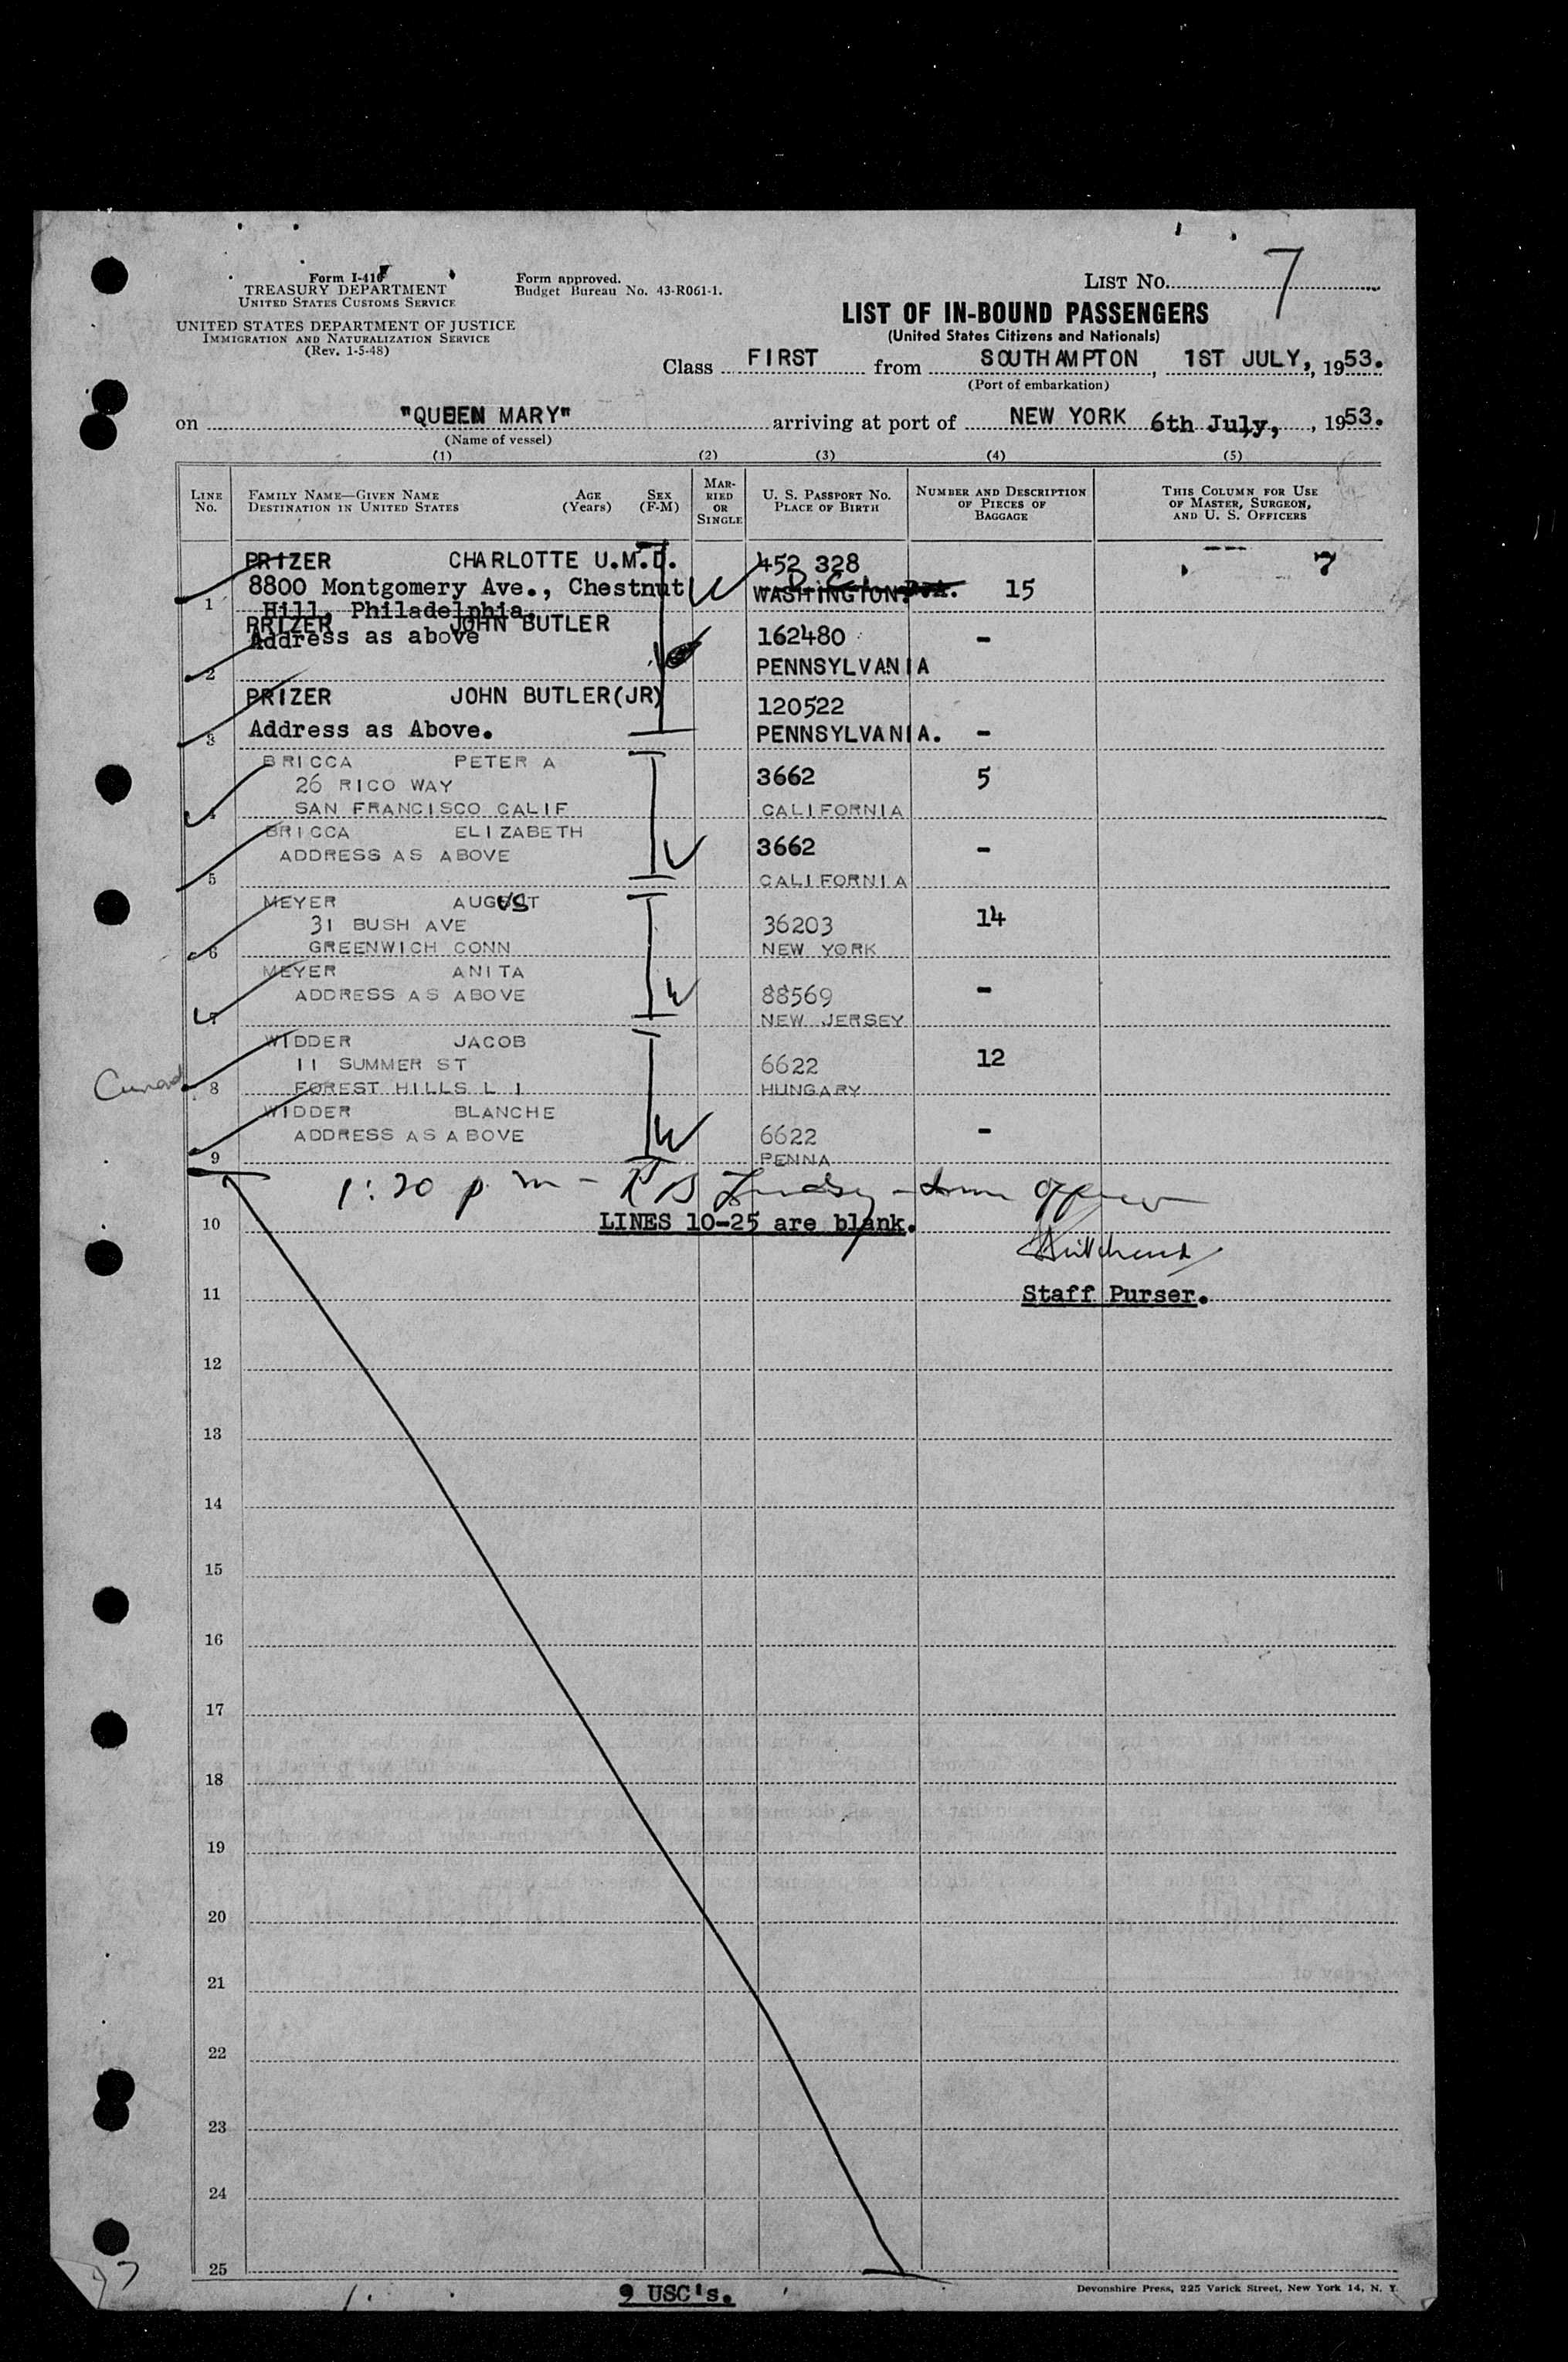 Form I-416
TREASURY DEPARTMENT
UNITED STATES CUSTOMS SERVICE
UNITED STATES DEPARTMENT OF JUSTICE
IMMIGRATION AND NATURALIZATION SERVICE
(Rev. 1-5-48)
Form approved.
Budget Bureau No. 43-R061-1.
LIST No. 7
LIST OF IN-BOUND PASSENGERS
(United States Citizens and Nationals)
Class FIRST from SOUTHAMPTON, 1ST JULY, , 1953.
(Port of embarkation)
on "QUEEN MARY" arriving at port of NEW YORK 6th July, , 1953.
(Name of vessel)
(1) (2) (3) (4) (5)
LINE No.
FAMILY NAME—GIVEN NAME
DESTINATION IN UNITED STATES
AGE (Years)
SEX (F-M)
MARRIED OR SINGLE
U. S. PASSPORT NO.
PLACE OF BIRTH
NUMBER AND DESCRIPTION OF PIECES OF BAGGAGE
THIS COLUMN FOR USE OF MASTER, SURGEON, AND U. S. OFFICERS
PRIZER CHARLOTTE U.M.D. 452 328 7
1 8800 Montgomery Ave., Chestnut WASHINGTON. D.C. 15
Hill, Philadelphia.
PRIZER JOHN BUTLER 162480 -
2 Address as above PENNSYLVANIA
PRIZER JOHN BUTLER(JR) 120522
3 Address as Above. PENNSYLVANIA. -
BRICCA PETER A 3662 5
26 RICO WAY
4 SAN FRANCISCO CALIF CALIFORNIA
BRICCA ELIZABETH 3662 -
ADDRESS AS ABOVE
5 CALIFORNIA
MEYER AUGUST 36203 14
31 BUSH AVE
6 GREENWICH CONN NEW YORK
MEYER ANITA 88569 -
ADDRESS AS ABOVE
7 NEW JERSEY
WIDDER JACOB 6622 12
11 SUMMER ST
Cunard 8 FOREST HILLS L I HUNGARY
WIDDER BLANCHE 6622 -
ADDRESS AS ABOVE
9 PENNA
1:20 p m - R B Lindsey - Imm Officer
10 LINES 10-25 are blank.
11 Staff Purser.
12
13
14
15
16
17
18
19
20
21
22
23
24
25
9 USC's.
Devonshire Press, 225 Varick Street, New York 14, N. Y.